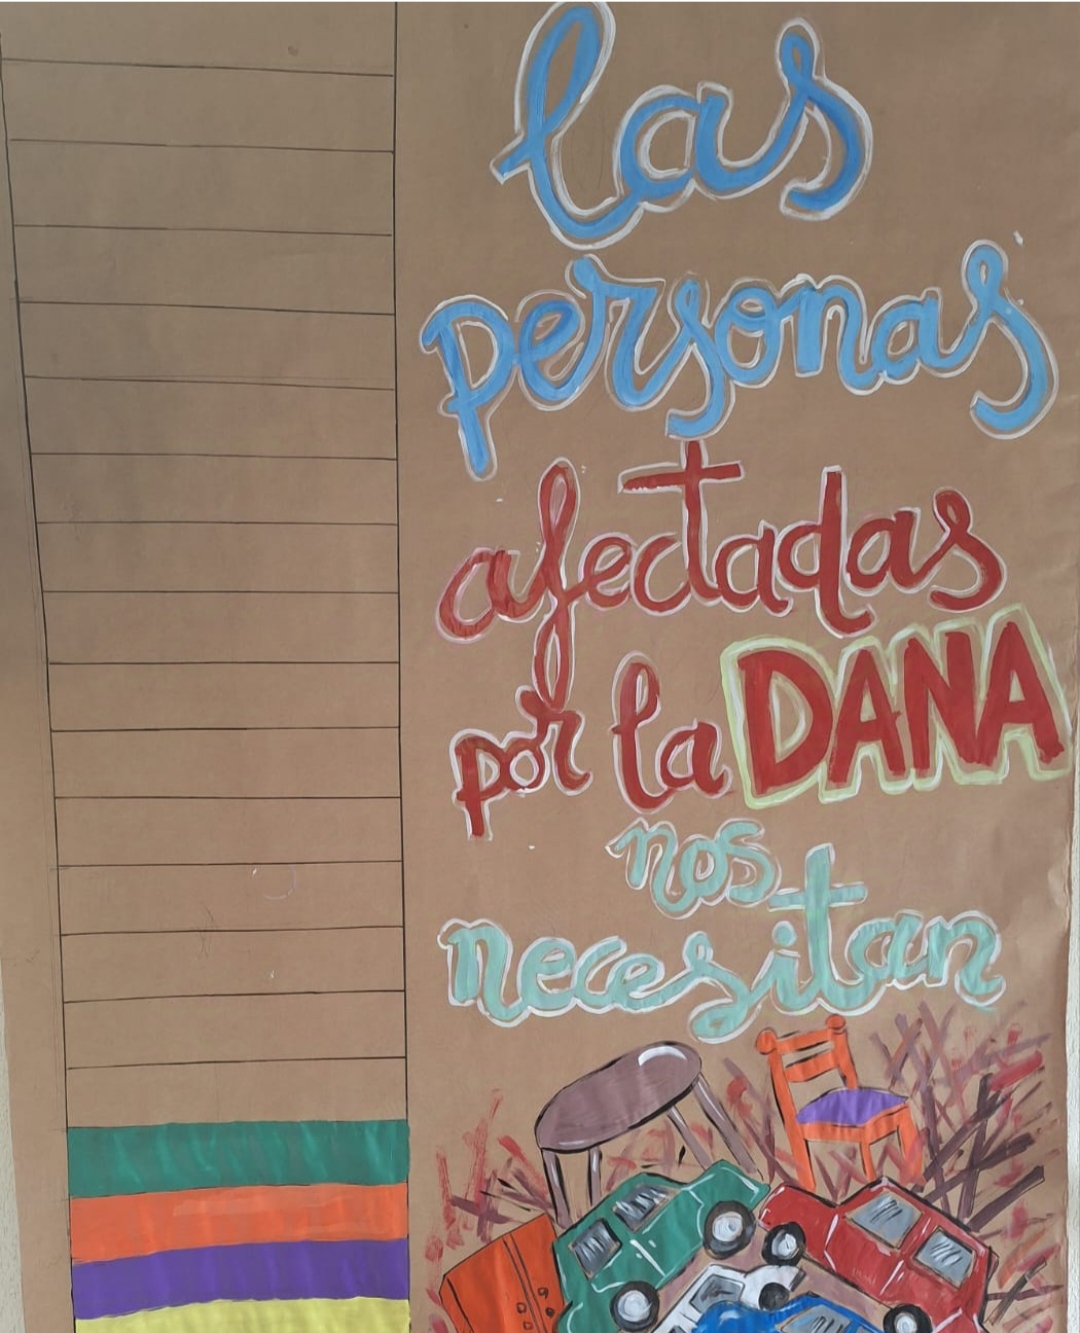 las
personas
afectadas
por la DANA
nos
necesitan